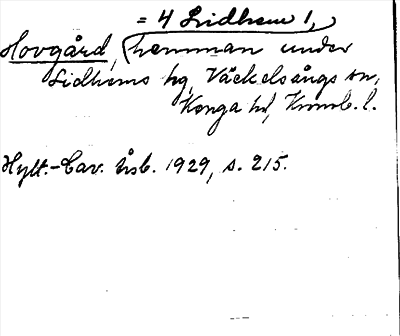 = 4 Lidhem 1,
Hovgård, hemman under
Lidhems hg, Väckelsångs sn,
Konga hd, Kronob. l.
Hylt.-Cav. årsb. 1929, s. 215.